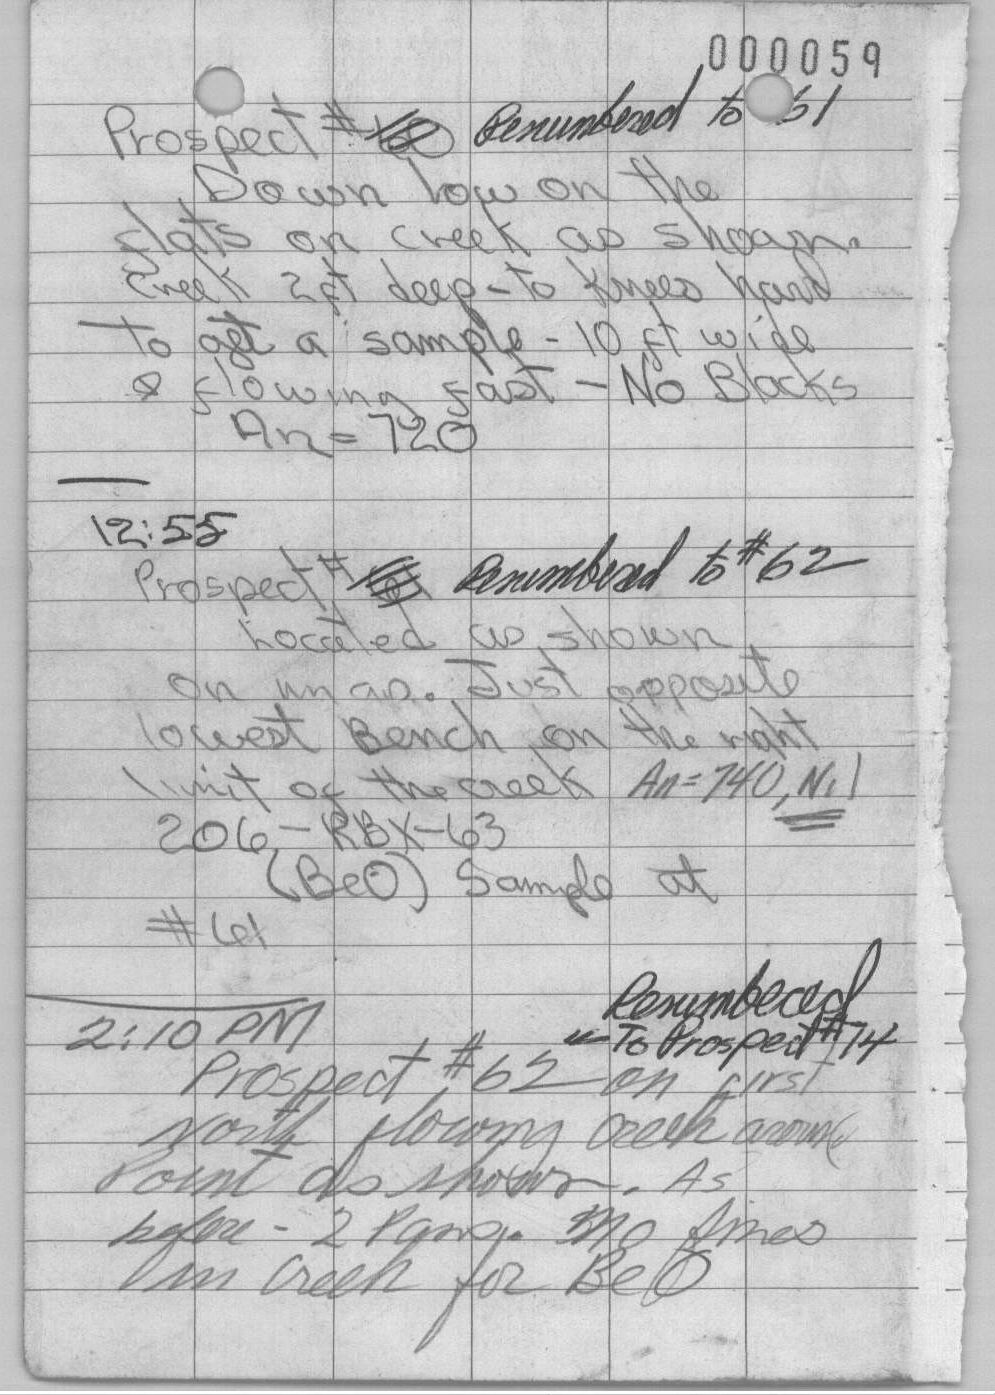 000059
Prospect # Renumbered to 61
Down low on the
flats on creek as shown.
Creek 2ft deep - to knees hard
to get a sample - 10 ft wide
& flowing fast - No Blacks
An = 720
12:55
Prospect # Renumbered to #62
Located as shown
on map. Just opposite
lowest Bench on the right
limit of the creek An = 740, Nil
206-RBX-63
(BeO) Sample at
#61
2:10 PM
Renumbered
To Prospect #74
Prospect #62 on first
North flowing creek around
Point as shown. As
before - 2 Pans. No fines
in Creek for BeO